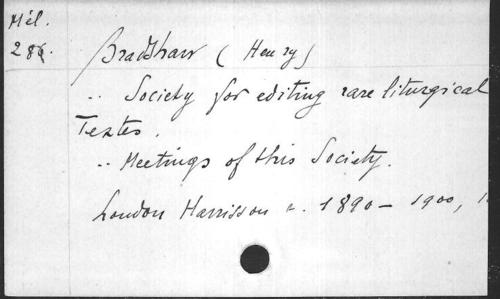 Mél.
286.
Bradshaw (Henry)
.. Society for editing rare liturgical
Textes.
.. Meetings of this Society.
London Harrisson 1890 – 1900,